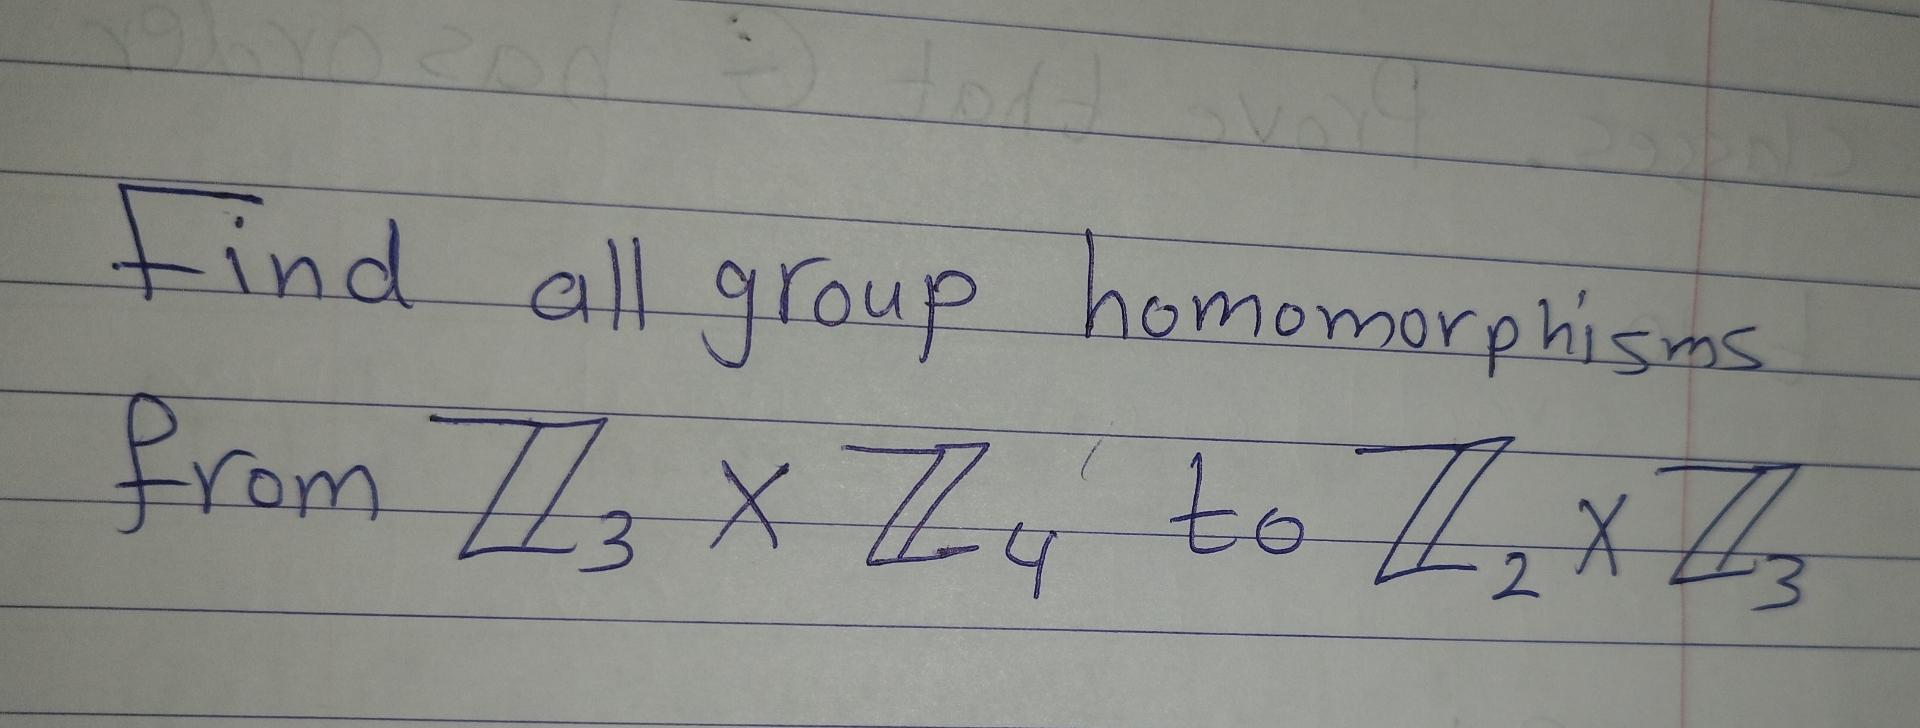 Find all group homomorphisms
from ℤ₃ × ℤ₄ to ℤ₂ × ℤ₃